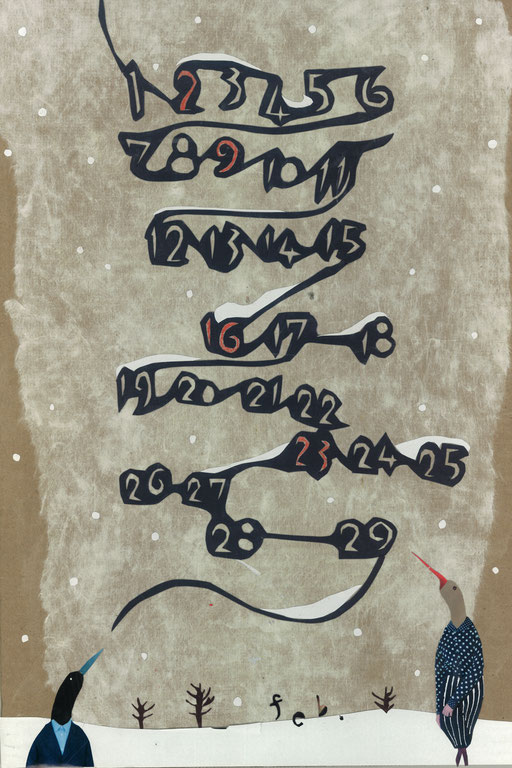 1 2 3 4 5 6
7 8 9 10 11
12 13 14 15
16 17 18
19 20 21 22
23 24 25
26 27
28 29
feb.